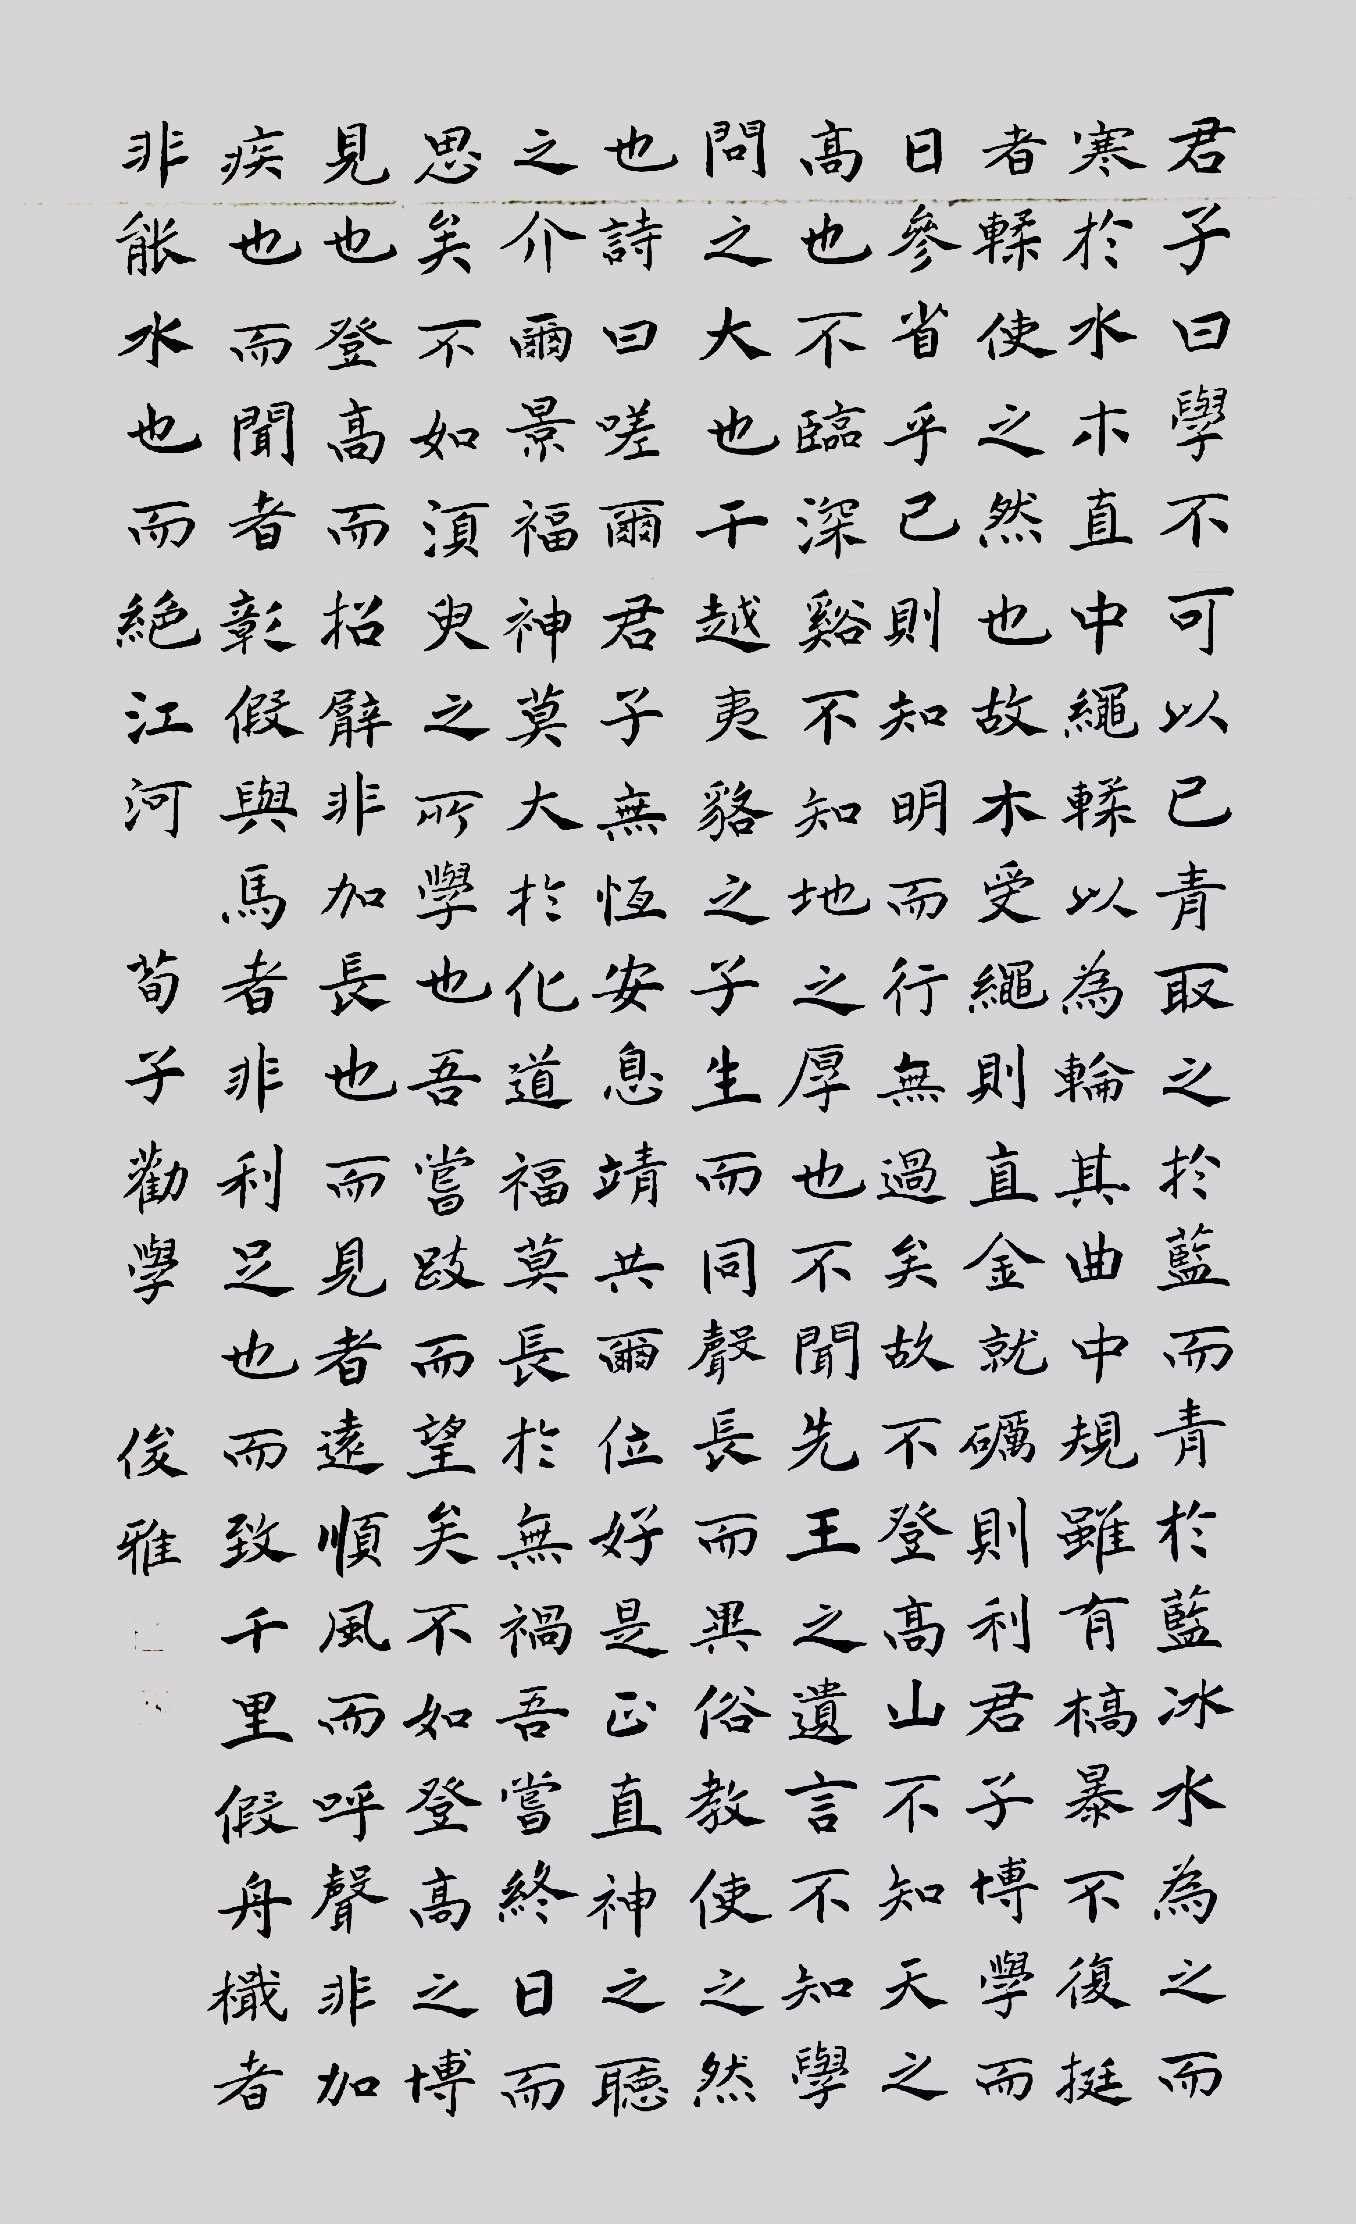 君子曰學不可以已青取之於藍而青於藍冰水為之而
寒於水木直中繩輮以為輪其曲中規雖有槁暴不復挺
者輮使之然也故木受繩則直金就礪則利君子博學而
日參省乎己則知明而行無過矣故不登高山不知天之
高也不臨深谿不知地之厚也不聞先王之遺言不知學
問之大也干越夷貉之子生而同聲長而異俗教使之然
也詩曰嗟爾君子無恆安息靖共爾位好是正直神之聽
之介爾景福神莫大於化道福莫長於無禍吾嘗終日而
思矣不如須臾之所學也吾嘗跂而望矣不如登高之博
見也登高而招臂非加長也而見者遠順風而呼聲非加
疾也而聞者彰假輿馬者非利足也而致千里假舟檝者
非能水也而絕江河 荀子勸學 俊雅